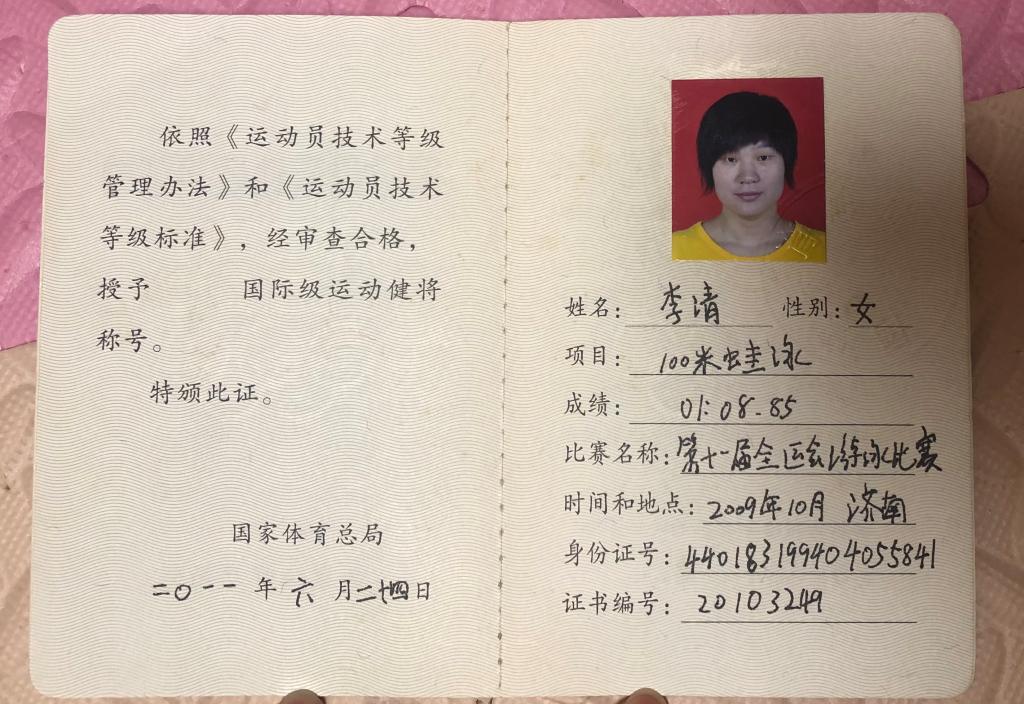 依照《运动员技术等级
管理办法》和《运动员技术
等级标准》，经审查合格，
授予 国际级运动健将
称号。
特颁此证。
国家体育总局
二〇一一年六月二十四日
姓名：李清 性别：女
项目：100米蛙泳
成绩：01:08.85
比赛名称：第十一届全运会游泳比赛
时间和地点：2009年10月 济南
身份证号：440183199404055841
证书编号：20103249